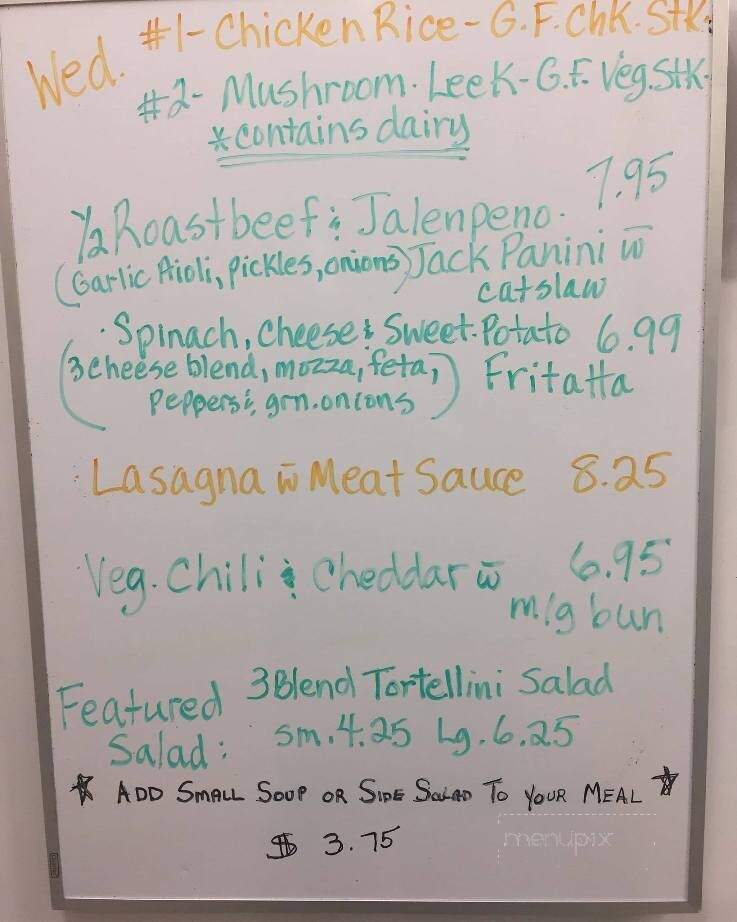 Wed. #1- Chicken Rice - G.F. Chk. Stk.
#2- Mushroom. Leek - G.F. Veg. Stk.
*contains dairy
7.95
½ Roastbeef & Jalenpeno.
(Garlic Aioli, pickles, onions) Jack Panini w̄
catslaw
· Spinach, cheese & Sweet Potato 6.99
(3 cheese blend, mozza, feta, Fritatta
Peppers & grn. onions)
· Lasagna w̄ Meat Sauce 8.25
· Veg. Chili & Cheddar w̄ 6.95
m/g bun
Featured 3 Blend Tortellini Salad
Salad: sm. 4.25 Lg. 6.25
☆ ADD SMALL SOUP OR SIDE SALAD TO YOUR MEAL ☆
$ 3.75
menupix